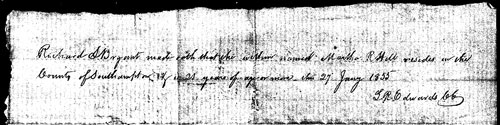 Richard S Bryant made oath that the within named Martha R Hill resides in the
County of Southampton, & is 21 years of age or more this 27 Jany 1855
L R Edwards Clk